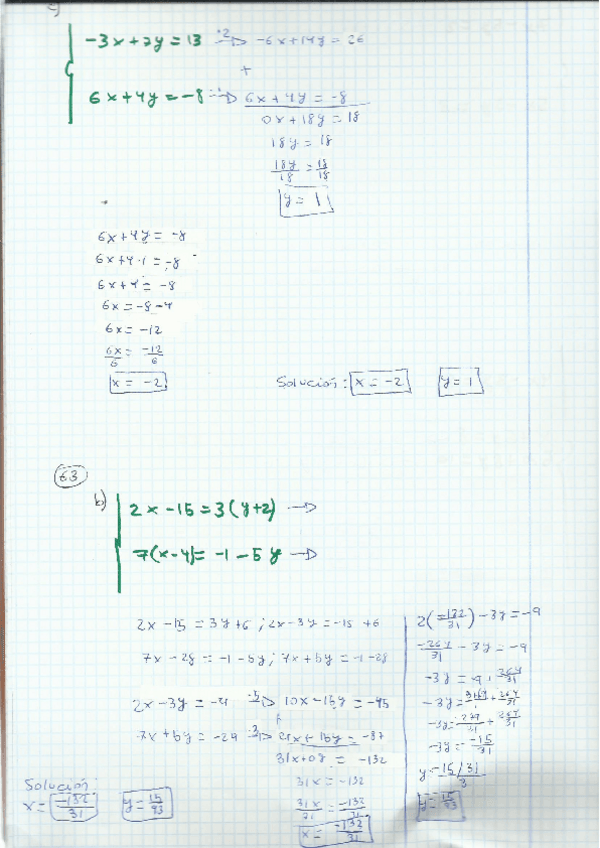 c)
-3x+7y=13 ·2 → -6x+14y=26
+
6x+4y=-8 → 6x+4y=-8
0x+18y=18
18y=18
18y/18=18/18
y=1
6x+4y=-8
6x+4·1=-8
6x+4=-8
6x=-8-4
6x=-12
6x/6=-12/6
x=-2
Solución: x=-2 y=1
63
b) 2x-15=3(y+2) →
7(x-4)=-1-5y →
2x-15=3y+6; 2x-3y=-15+6
7x-28=-1-5y; 7x+5y=-1-28
2x-3y=-9 ·5 → 10x-15y=-45
+
7x+5y=-29 ·3 → 21x+15y=-87
31x+0y=-132
31x=-132
31x/31=-132/31
x=-132/31
2(-132/31)-3y=-9
-264/31-3y=-9
-3y=-9+264/31
-3y=-279/31+264/31
-3y=-15/31
y=-15/31
3
y=15/93
Solución:
x=-132/31 y=15/93